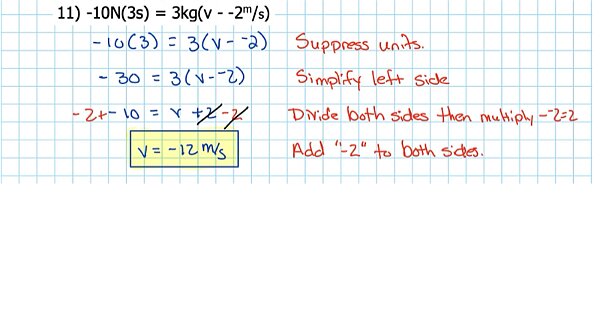 11) -10N(3s) = 3kg(v - -2m/s)
-10(3) = 3(v - -2) Suppress units.
- 30 = 3(v - -2) Simplify left side
-2+ -10 = v +2 -2 Divide both sides then multiply - -2=2
v = -12 m/s Add "-2" to both sides.